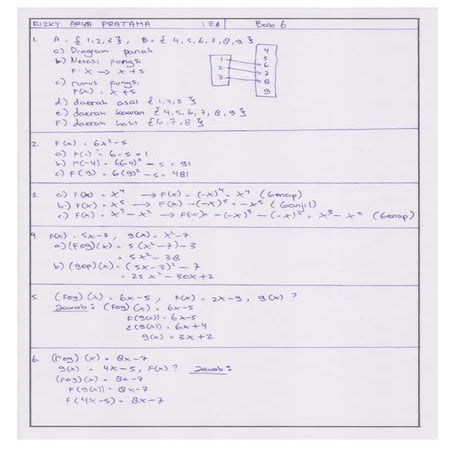 RIZKY ARYA PRATAMA 1EA Bab 6
1. A = {1,2,3}, B = {4,5,6,7,8,9}
a) Diagram panah
b) Notasi fungsi
F: x → x+5
c) rumus fungsi
F(x) = x+5
d) daerah asal {1,2,3}
e) daerah kawan {4,5,6,7,8,9}
F) daerah hasil {6,7,8}
1
2
3
4
5
6
7
8
9
2. F(x) = 6x²-5
a) F(1) = 6-5 = 1
b) F(-4) = 6(-4)² - 5 = 91
c) F(9) = 6(9)² - 5 = 481
3. a) F(x) = x⁴ → F(x) = (-x)⁴ = x⁴ (Genap)
b) F(x) = x⁵ → F(x) = (-x)⁵ = -x⁵ (Ganjil)
c) F(x) = x³ - x² → F(x) = -(x)³ - (-x)² = x³ - x² (Genap)
4. F(x) = 5x-3, g(x) = x²-7
a) (Fog)(x) = 5(x²-7)-3
= 5x² - 38
b) (goF)(x) = (5x-3)² - 7
= 25x² - 30x + 2
5. (Fog)(x) = 6x-5, F(x) = 2x-9, g(x)?
Jawab: (Fog)(x) = 6x-5
F(g(x)) = 6x-5
2(g(x)) = 6x+4
g(x) = 3x+2
6. (Fog)(x) = 8x-7
g(x) = 4x-5, F(x)? Jawab:
(Fog)(x) = 8x-7
F(g(x)) = 8x-7
F(4x-5) = 8x-7